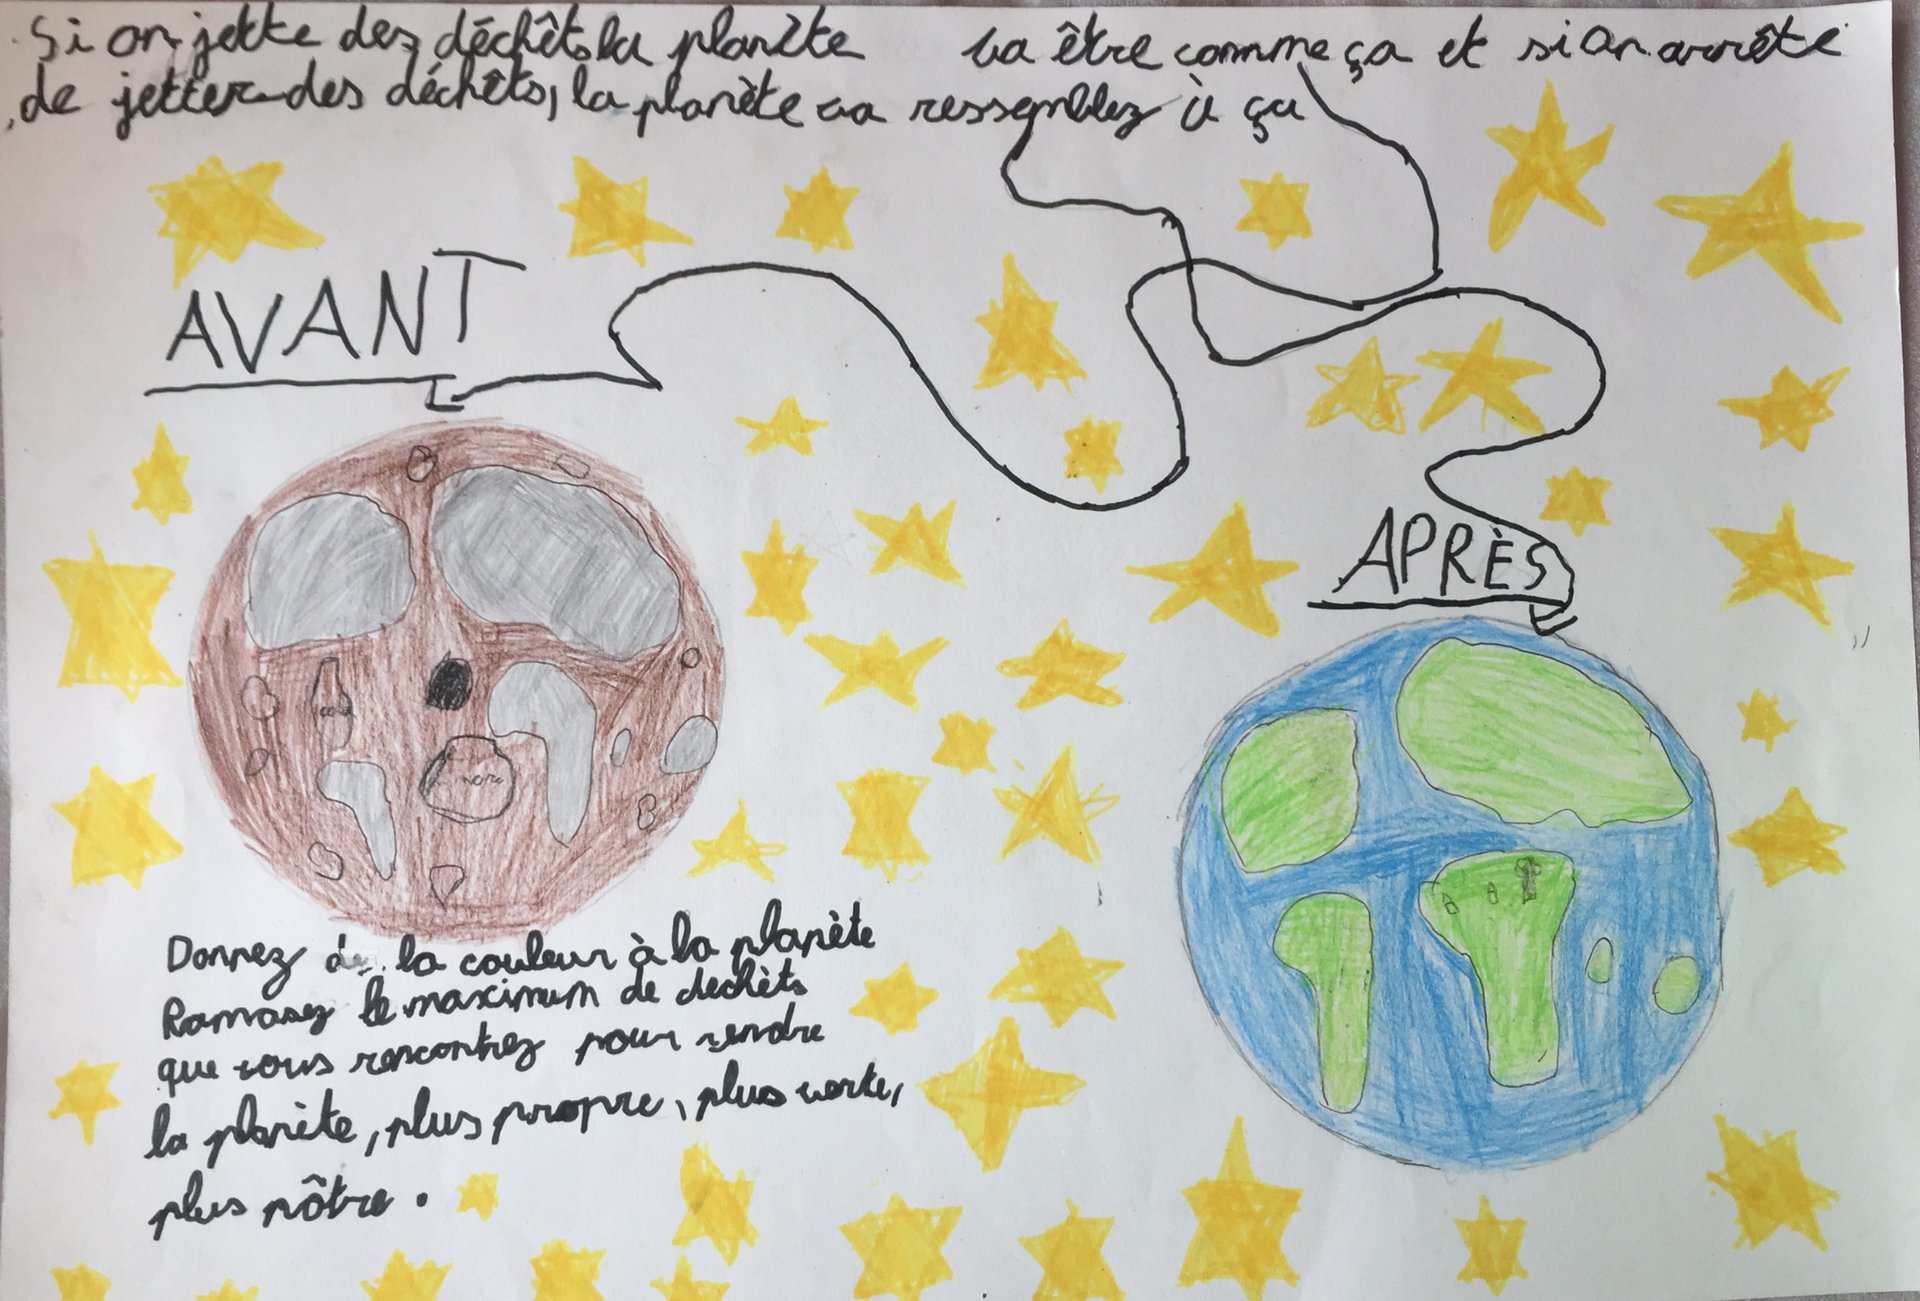 Si on jette des déchêts la planète va être comme ça et si on arrête
de jetter des déchêts, la planète va ressemblez à ça
AVANT
APRÈS
Donnez de la couleur à la planète
Ramasez le maximum de dechèts
que vous rencontrez pour rendre
la planète, plus propre, plus verte,
plus nôtre.